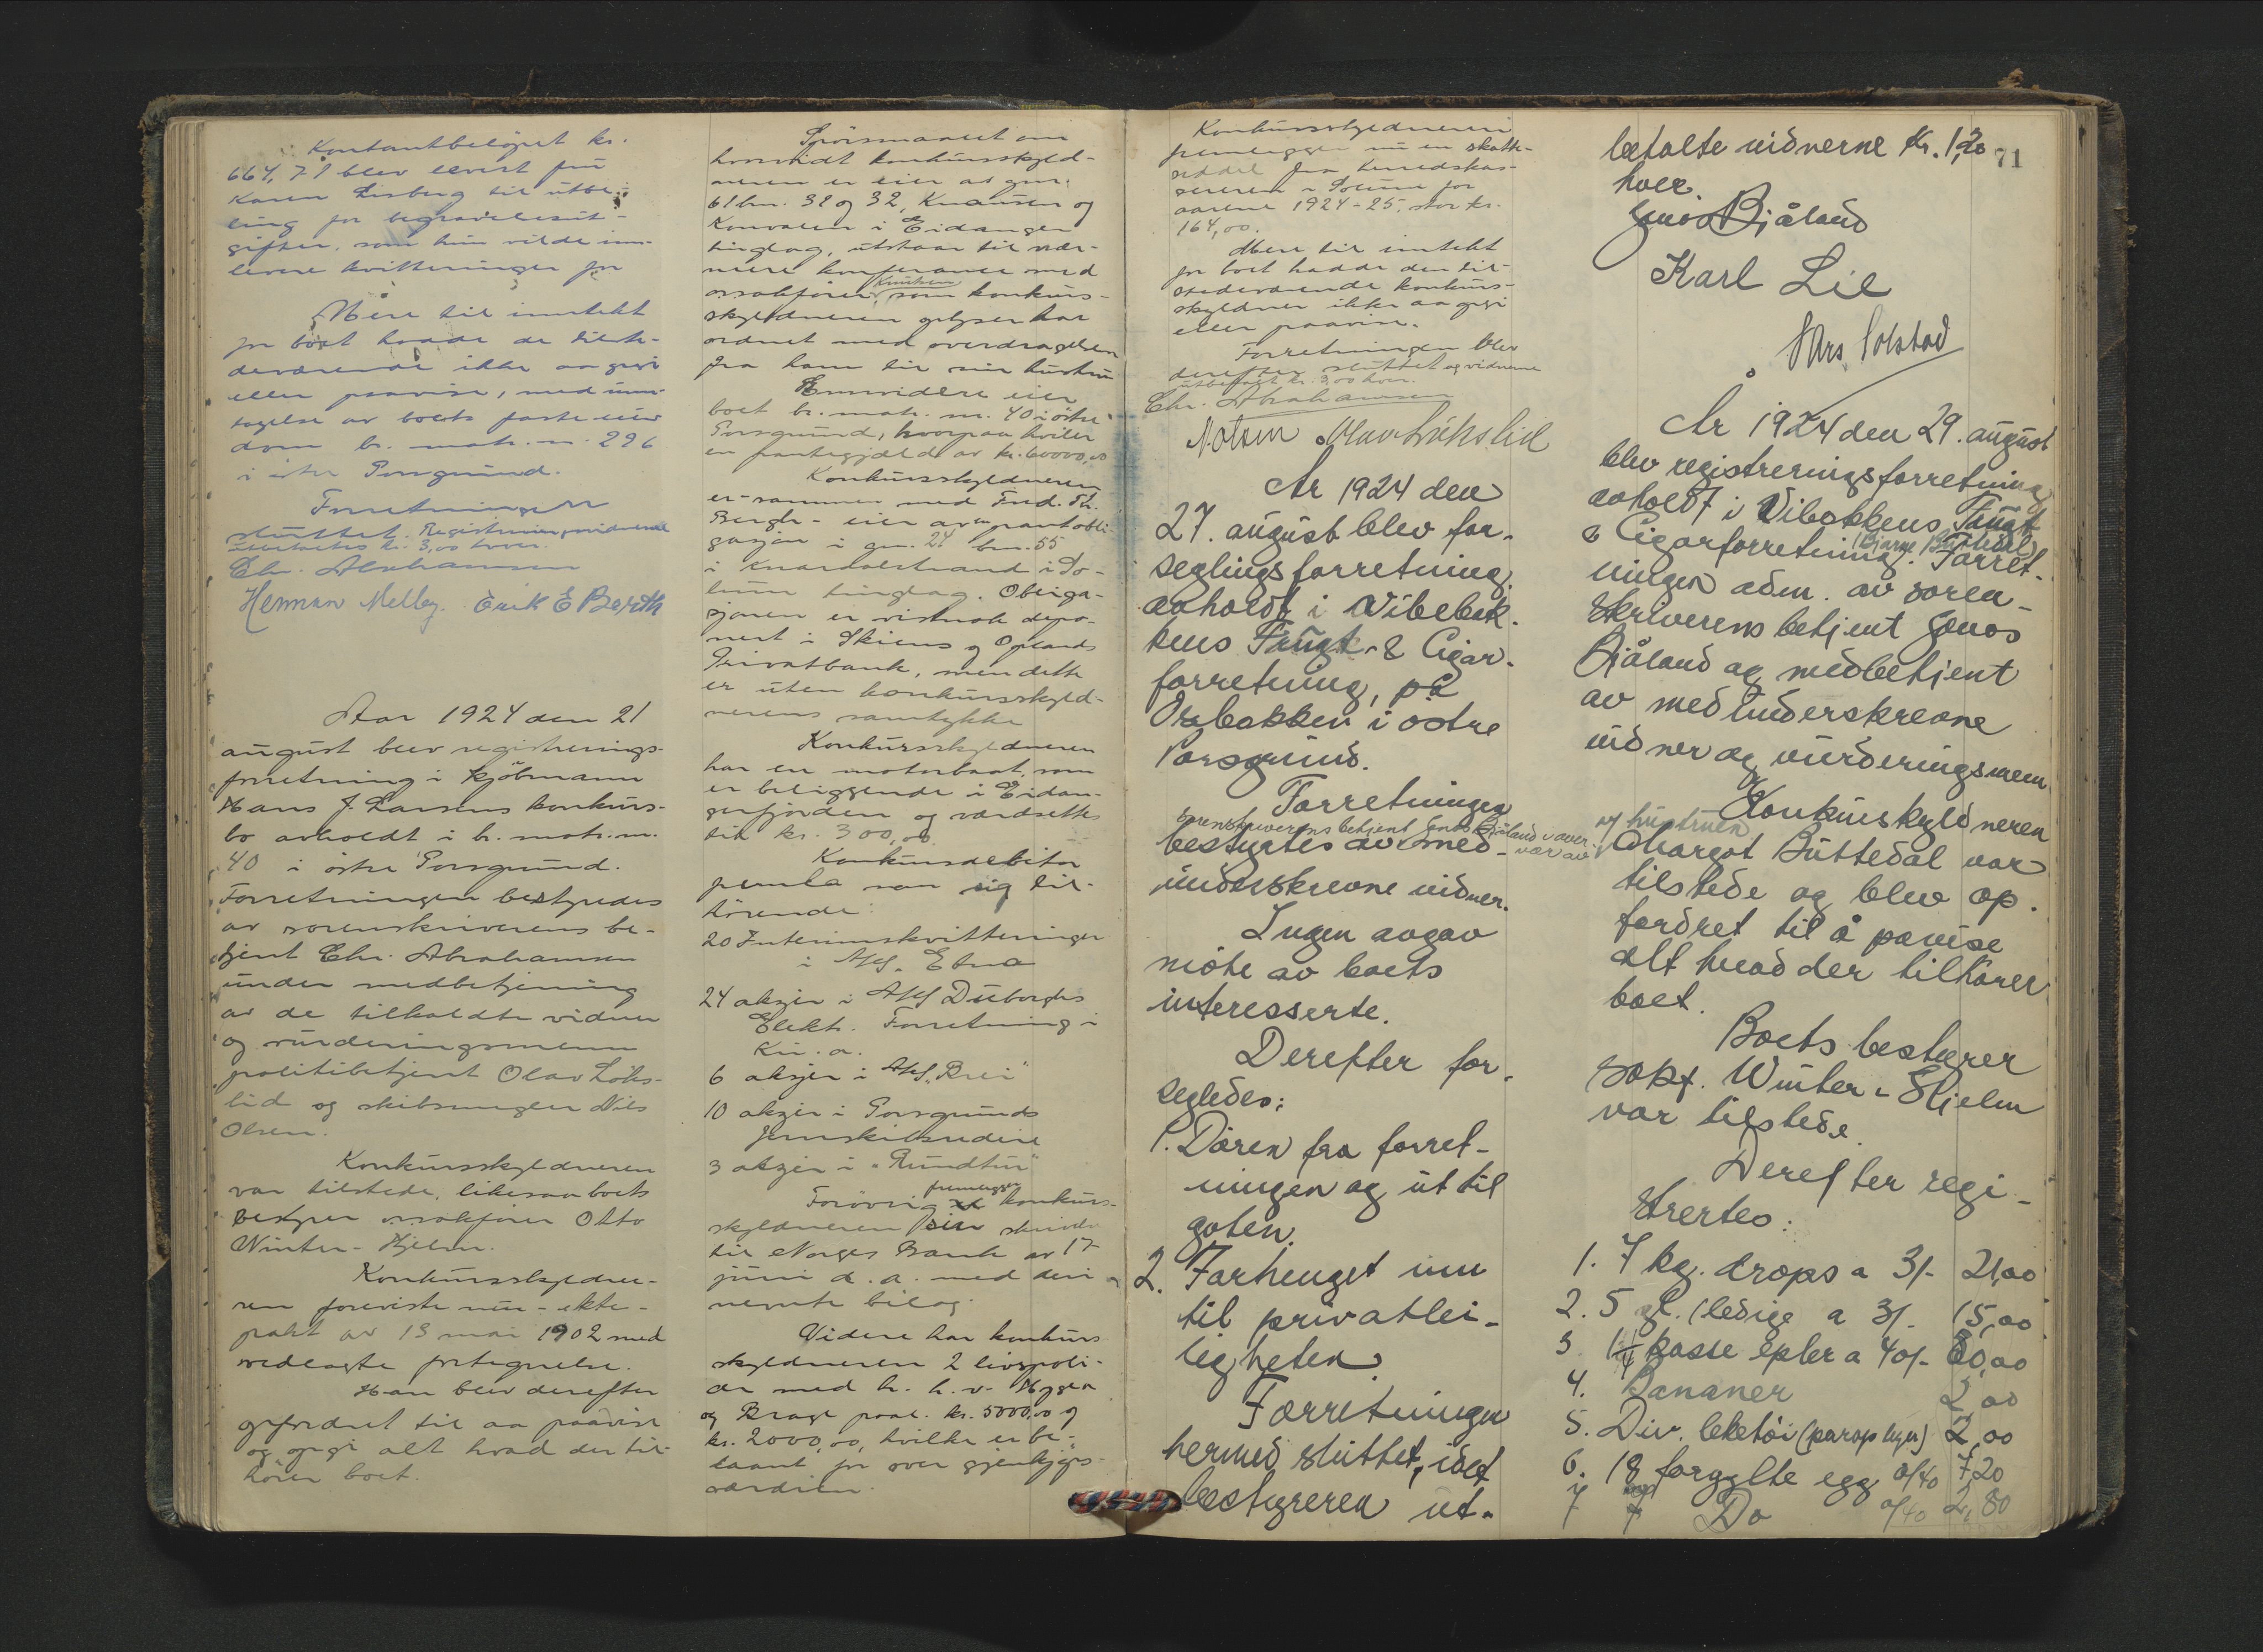 Kontantbeløpet kr.
664,71 blev levert fru
Karen Lisberg til utbe-
ling for begravelsesut-
gifter, som hun vilde inn-
levere kvitteringer for
Mere til inntekt
for boet hadde de tilste-
deværende ikke aa opgi
eller paavise, med unn-
tagelse av boets faste eien
dom br. matr. nr. 296
i østre Porsgrund.
Forretningen
sluttet. Registreringsvidnerne
utbetaltes kr. 3,00 hver.
Chr. Abrahamsen
Herman Melby. Erik E Berth
Aar 1924 den 21
august blev registrerings-
forretning i kjöbmann
Hans J. Larsens konkurs-
bo avholdt i br. matr. nr.
40 i østre Porsgrund.
Forretningen bestyredes
av sorenskriverens be-
tjent Chr. Abrahamsen
under medbetjening
av de tilkaldte vidner
og vurderingsmenn
politibetjent Olav Löks-
lid og skibsmegler Nils
Olsen.
Konkursskyldneren
var tilstede, likesaa boets
bestyrer o.r.sakfører Otto
Winter-Hjelm.
Konkursskyldne-
ren foreviste nu - ekte-
pakt av 13 mai 1902 med
vedlagte fortegnelse.
Han blev derefter
opfordret til aa paavise
og opgi alt hvad der til-
hörer boet.
Spörsmaalet om
hvorvidt konkursskyld-
neren er eier av gnr.
61 bnr. 31 og 32, Knausen og
Konvalen i Eidanger
tinglag, utstaar til nær-
mere konferanse med
o.r.sakfører Knutsen som konkurs-
skyldneren oplyser har
ordnet med overdragelsen
fra ham til sin hustru
Emvidere eier
boet br. matr. nr. 40 i östre
Porsgrund, hvorpaa hviler
en pantegjæld av kr. 60000,00
Konkursskyldneren
er - sammen med Fred. Th.
Bergh - eier av en pantobli-
gasjon i gnr. 24 bnr. 55
i Knardalstrand i So-
lum tinglag. Obliga-
sjonen er visstnok depo-
nert i Skiens og Oplands
Privatbank, men dette
er uten konkursskyld-
nerens samtykke
Konkursskyldneren
har en motorbaat, som
er beliggende i Eidan-
gerfjorden og værdsettes
til kr. 300,00
Konkursdebitor
pemla som sig til-
hörende:
20 Interimskvitteringer
i A/S. Etna
24 aksjer i A/S Duborghs
Elektr. Forretning i
Kr.a.
6 aksjer i A/S "Brei"
10 aksjer i Porsgrunds
Jernskibsrederi
3 aksjer i "Rundtur"
Forövrig fremlegger konkurs-
skyldneren sin skrivelse
til Norges Bank av 17
juni d.a. med deri
nevnte bilag.
Videre har konkurs
skyldneren 2 livspoli-
cer med h.h.v. Hygea
og Brage paal. kr. 5000,00 og
kr. 2000,00, hvilke er be-
laant for over gjenkjöps-
værdien.
Konkursskyldneren
fremlegger nu en skatte-
seddel fra herredskas-
sereren i Solum for
aarene 1924-25, stor kr.
164,00.
Mere til inntekt
for boet hadde den til-
stedeværende konkurs-
skyldner ikke aa opgi
eller paavise.
Forretningen blev
derefter sluttet og vidnerne
utbetalt kr. 3,00 hver.
Chr. Abrahamsen
N Olsen Olav Lökslid
År 1924 den
27. august blev for-
seglingsforretning
avholdt i Vibebak-
kens Frugt- & Cigar-
forretning, på
Osebakken i östre
Porsgrund.
Forretningen
sorenskriverens betjent Jonas Bjåland i over-
bestyrtes av med- vær av
underskrevne vidner.
Ingen avgav
möte av boets
interesserte.
Derefter for-
segledes:
1. Dören fra forret-
ningen og ut til
gaten.
2. Forhenget inn
til privatlei-
ligheten.
Forretningen
hermed sluttet, idet
bestyreren ut-
71
betalte vidnerne Kr. 1,20
hver.
Jonas Bjåland
Karl Lie
Nils Solstad
År 1924 den 29. august
blev registreringsforretning
avholdt i Vibakkens Frugt
& Cigarforretning. (Bjarne Buttedal) Forret-
ningen adm. av soren-
skriverens betjent Jonas
Bjåland og medbetjent
av medunderskrevne
vidner og vurderingsmenn
Konkurskyldneren
og hustruen
Margot Buttedal var
tilstede og blev op-
fordret til å påvise
alt hvad der tilhörer
boet.
Boets bestyrer
sakf. Winter-Hjelm
var tilstede.
Derefter regi-
strertes:
1. 7 kg. drops a 3/- 21,00
2. 5 gl. (ledige a 3/- 15,00
3 kasse epler a 40/-
4. Bananer 2,00
5. Div. leketöi 2,00
6. 18 forgylte egg a/40 7,20
7 7 Do a/40 2,80